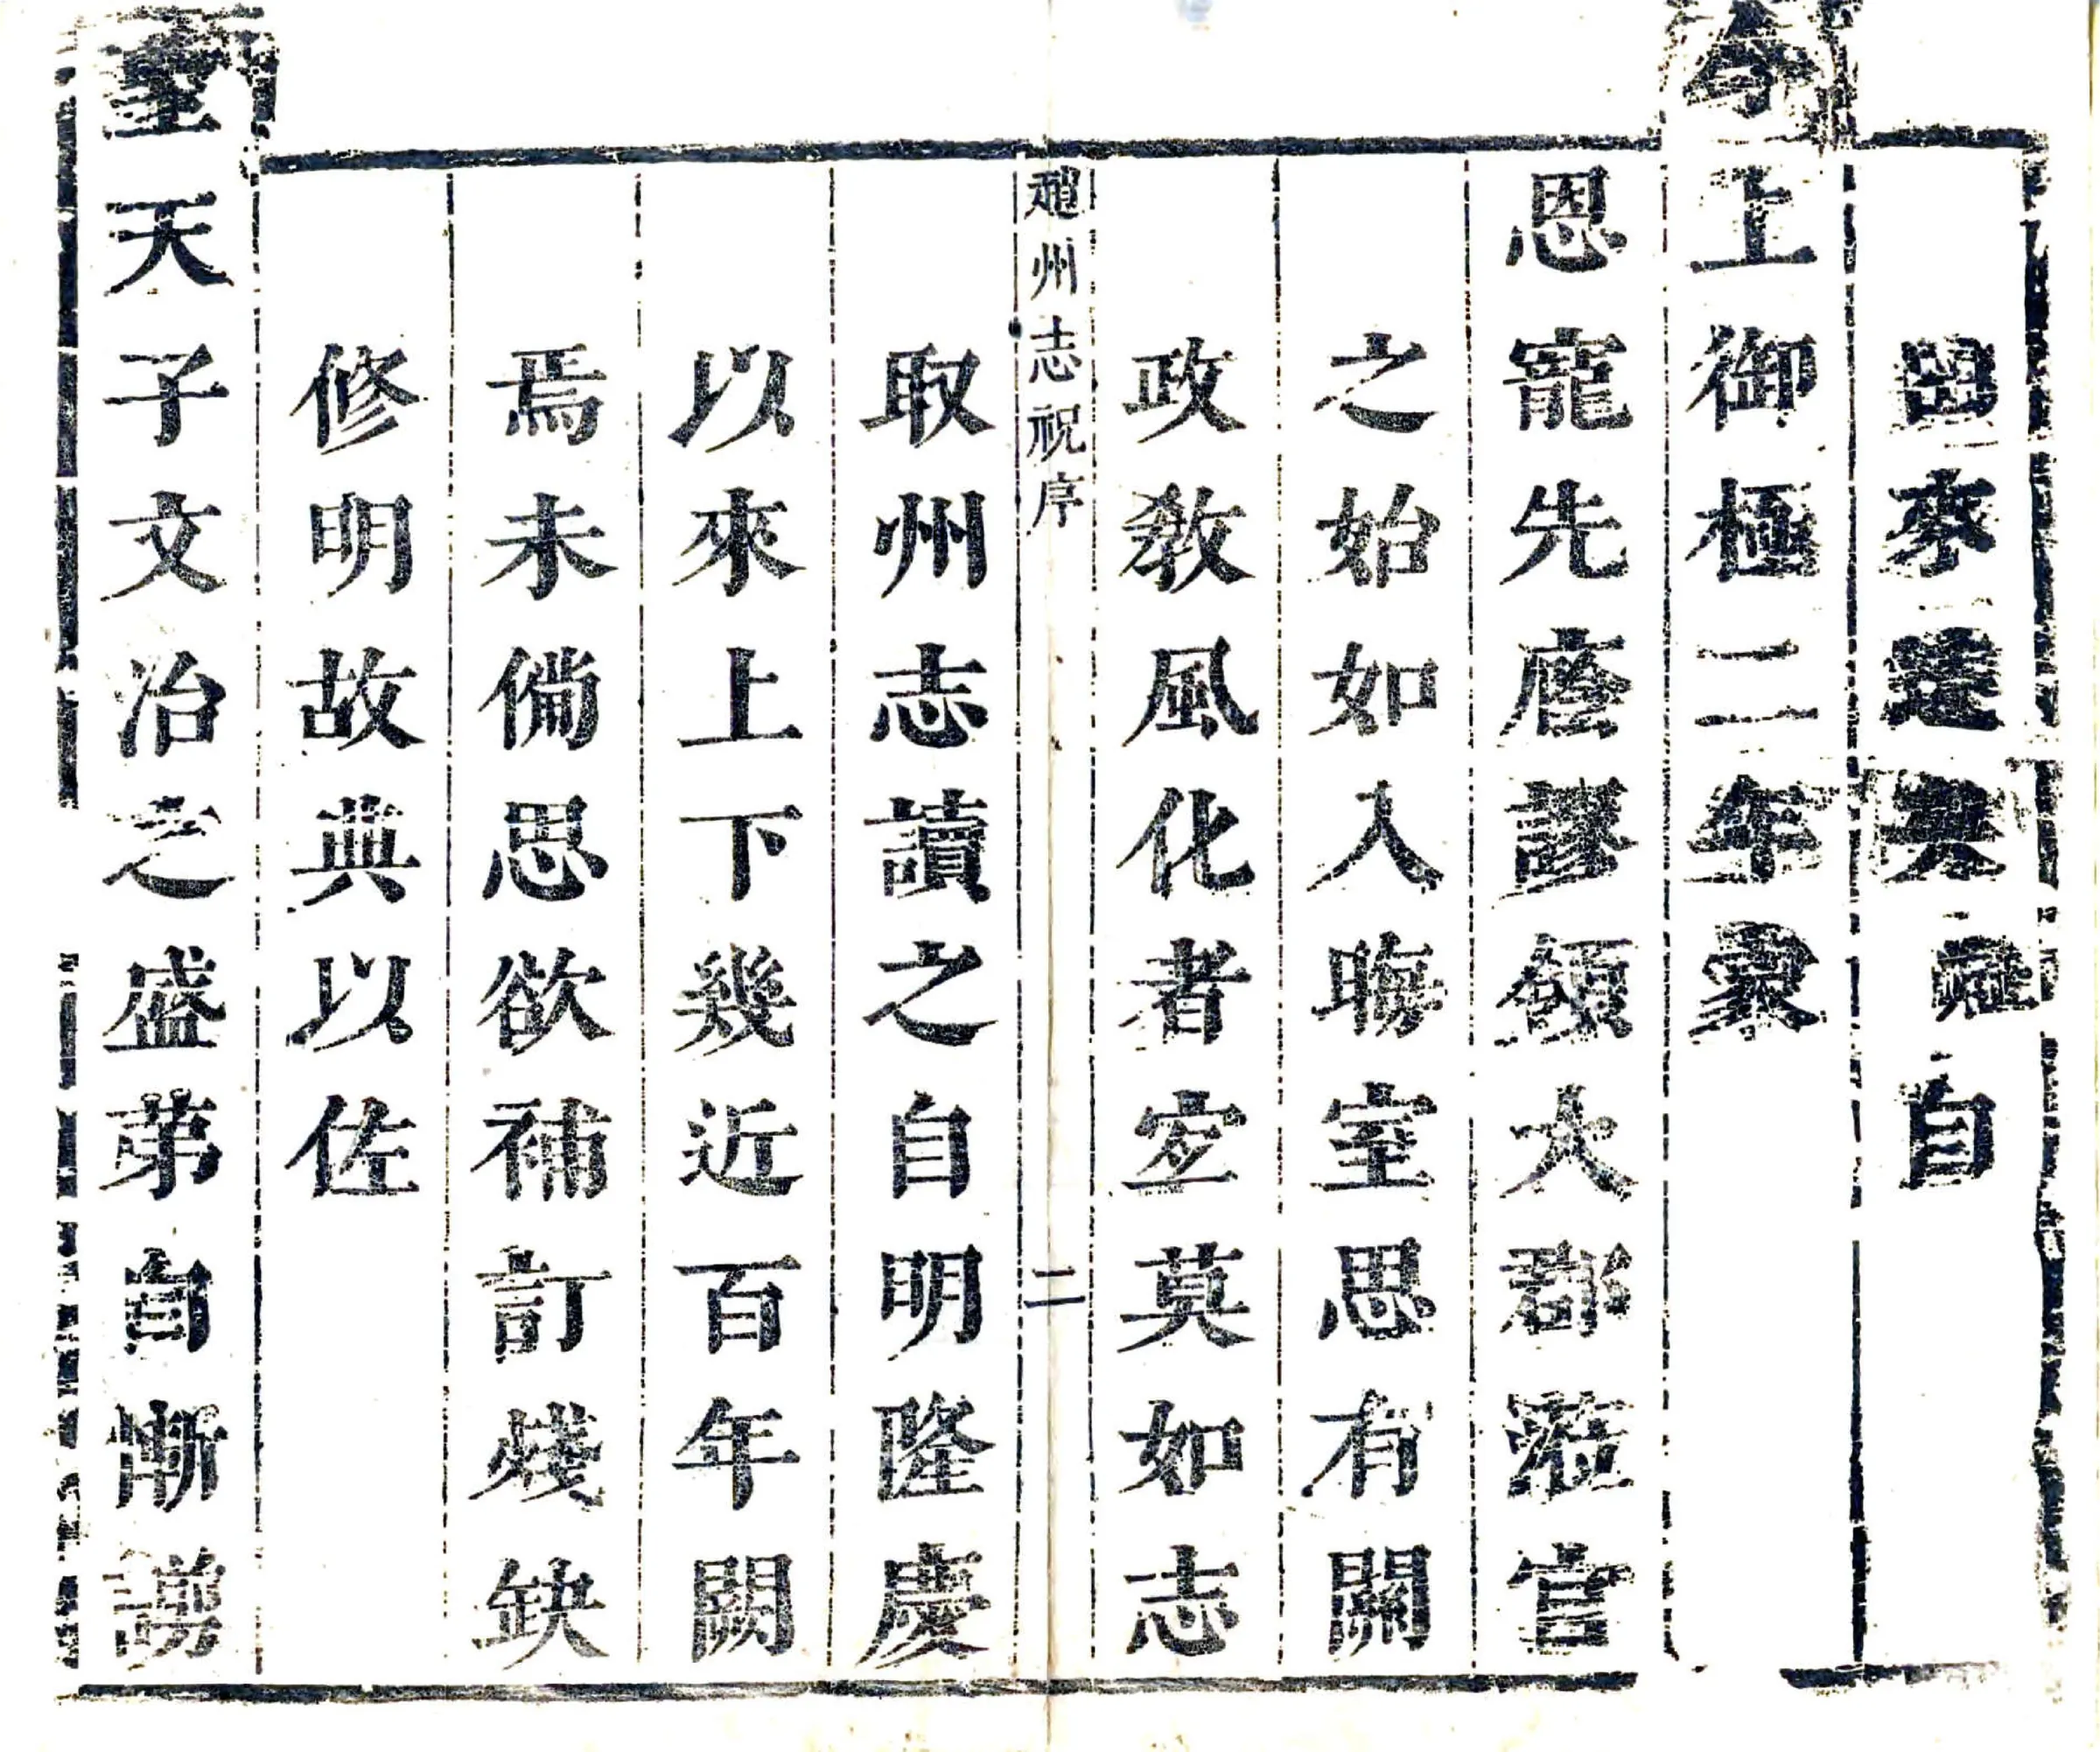 來
自
今上御極二年蒙
恩寵先廕謬領大郡蒞官
之始如入晦室思有關
政敎風化者宐莫如志
趙州志祝序
二
取州志讀之自明隆慶
以來上下幾近百年闕
焉未備思欲補訂殘缺
修明故典以佐
聖天子文治之盛苐自慚謭